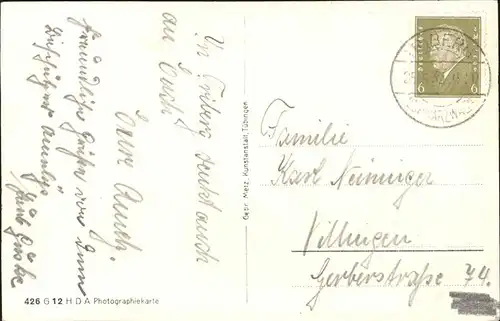 In Triberg denkt auch
an Euch
Eure Anch.
Freundliche Grüße von dem
426 G 12 H D A Photographiekarte
Gebr. Metz, Kunstanstalt, Tübingen
TRIBERG
6 6
Familie
Karl Neininger
Villingen
Gerberstraße 74.